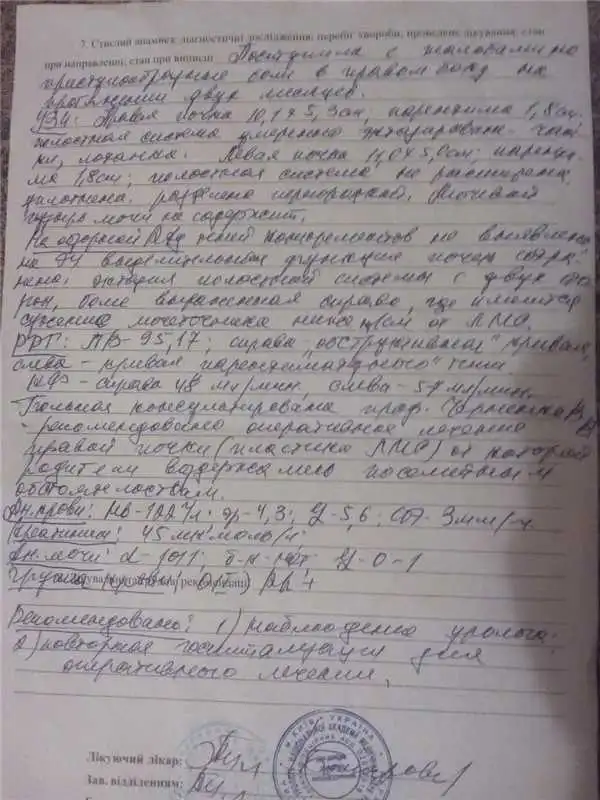 7. Стислий анамнез, діагностичні дослідження, перебіг хвороби, проведене лікування, стан
при направленні, стан при виписці Поступила с жалобами на
приступообразные боли в правом боку на
протяжении двух месяцев.
УЗИ: Правая почка 10,1 х 5,3 см, паренхима 1,8 см.
полостная система умеренно
лоханка. Левая почка 11,0х5,0см; паренхи-
ма 1,8см; полостная система не расширена,
уплотнена, разделена перегородкой. Мочевой
пузырь мочи не содержит.
На обзорной теней конкрементов не выявлено
на выделительная функция почек сохра-
нена, эктазия полостной системы с двух сто
рон, более выраженная справа, где имеется
сужение мочеточника ниже 1см от ЛМС.
РРГ: 95,17; справа „обструктивная" кривая,
слева - кривая паренхиматозного" типа.
справа 48 мл/мин, слева - 57 мл/мин.
Больная консультирована проф.
- рекомендовано оперативное лечение
правой почки (пластика ЛМС) от которой
родители воздержались по семейным
обстоятельствам.
Ан. крови: Hb - 122 г/л; эр - 4,3; 5,6; СОЭ - 3мм/ч
Креатинин: 45 мкмоль/л
Ан. мочи: d - 1011; б-к - нет, 0-1
Группа крови Rh +
Рекомендовано: 1) Наблюдение уролога.
2) повторная госпитализация для
оперативного лечения.
Лікуючий лікар:
Зав. відділенням:
М.КИЇВ УКРАЇНА